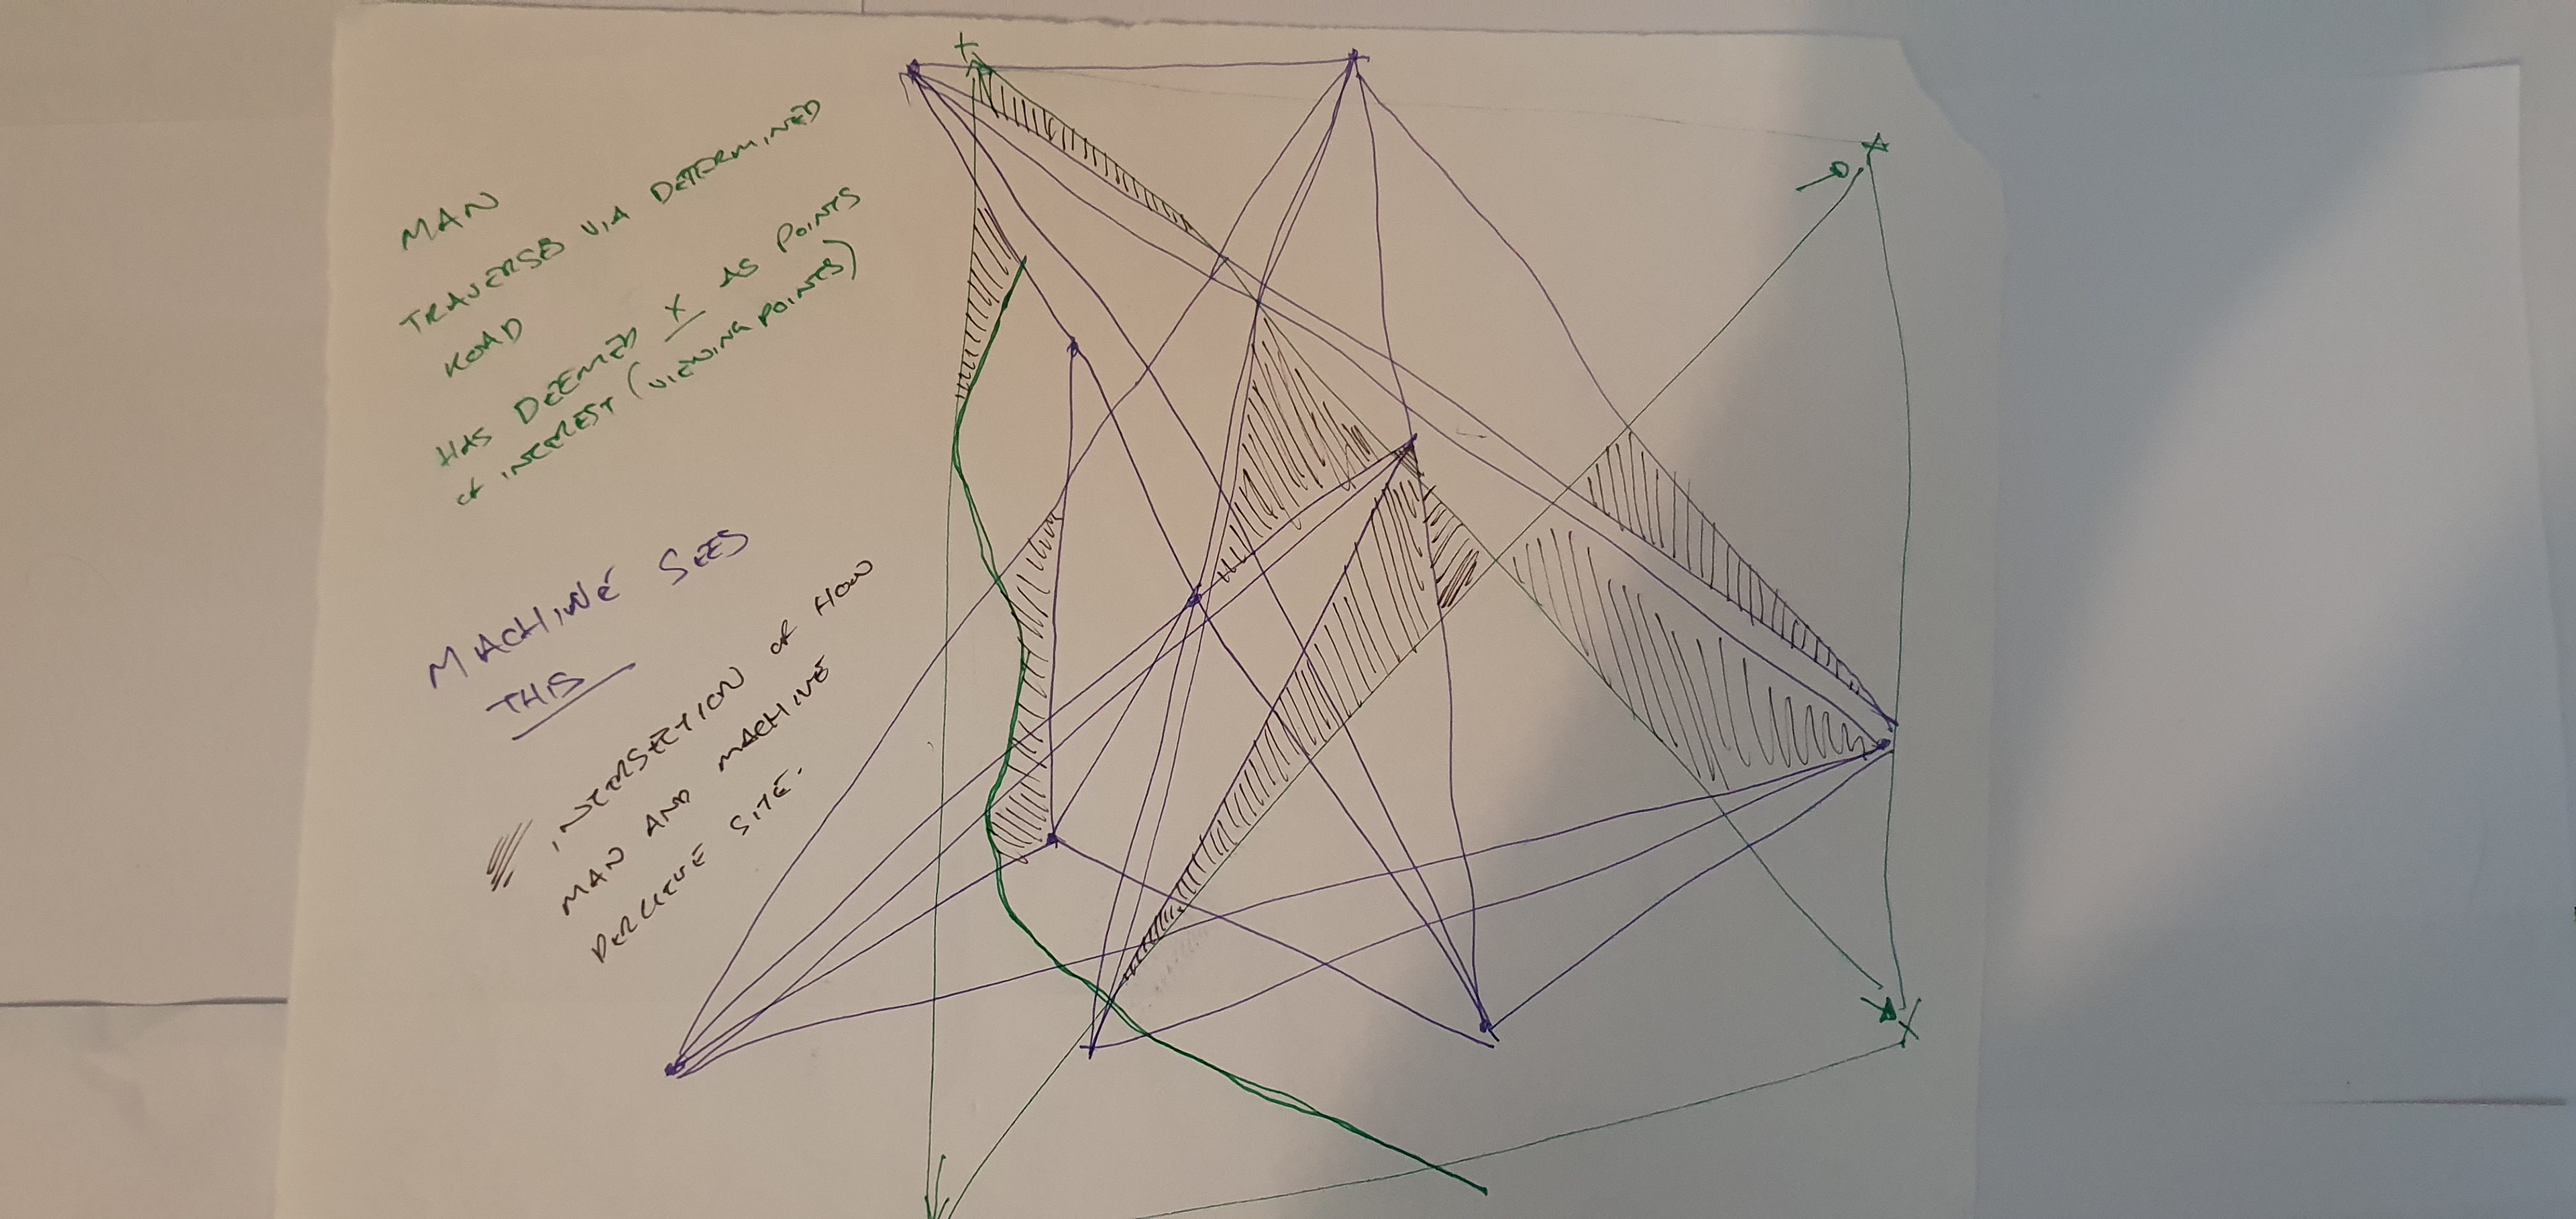 MAN
TRAVERSES VIA DETERMINED
ROAD
HAS DEEMED X AS POINTS
OF INTEREST (VIEWING POINTS)
MACHINE SEES
THIS
INTERSECTION OF HOW
MAN AND MACHINE
PERCIEVE SITE.